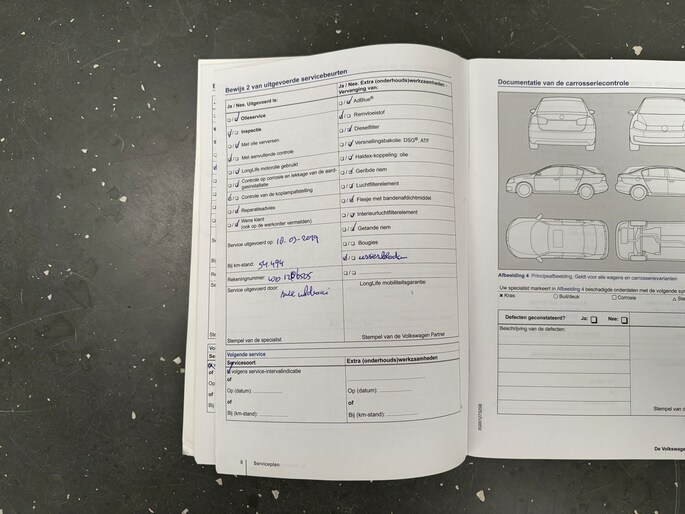 Bewijs 2 van uitgevoerde servicebeurten
Ja / Nee. Uitgevoerd is:
Olieservice
Inspectie
Met olie verversen
Met aanvullende controle
LongLife motorolie gebruikt
Controle op corrosie en lekkage van de aardgasinstallatie
Controle van de koplampafstelling
Reparatieadvies
Wens klant
(ook op de werkorder vermelden)
Service uitgevoerd op:
Bij km-stand: 54.494
Rekeningnummer:
Service uitgevoerd door:
Stempel van de specialist
Ja / Nee. Extra (onderhouds)werkzaamheden -
Vervanging van:
AdBlue®
Remvloeistof
Dieselfilter
Versnellingsbakolie: DSG®, ATF
Haldex-koppeling: olie
Geribde riem
Luchtfilterelement
Flesje met bandenafdichtmiddel
Interieurluchtfilterelement
Getande riem
Bougies
wisserbladen
LongLife mobiliteitsgarantie:
Stempel van de Volkswagen Partner
Volgende service
Servicesoort
volgens service-intervalindicatie
of
Op (datum):
of
Bij (km-stand):
Extra (onderhouds)werkzaamheden
Op (datum):
of
Bij (km-stand):
8 Serviceplan
Documentatie van de carrosseriecontrole
Afbeelding 4 Principeafbeelding: Geldt voor alle wagens en carrosserievarianten
Uw specialist markeert in Afbeelding 4 beschadigde onderdelen met de volgende sy
Kras Buil/deuk Corrosie Ste
Defecten geconstateerd? Ja: Nee:
Beschrijving van de defecten:
Stempel van d
De Volkswagen